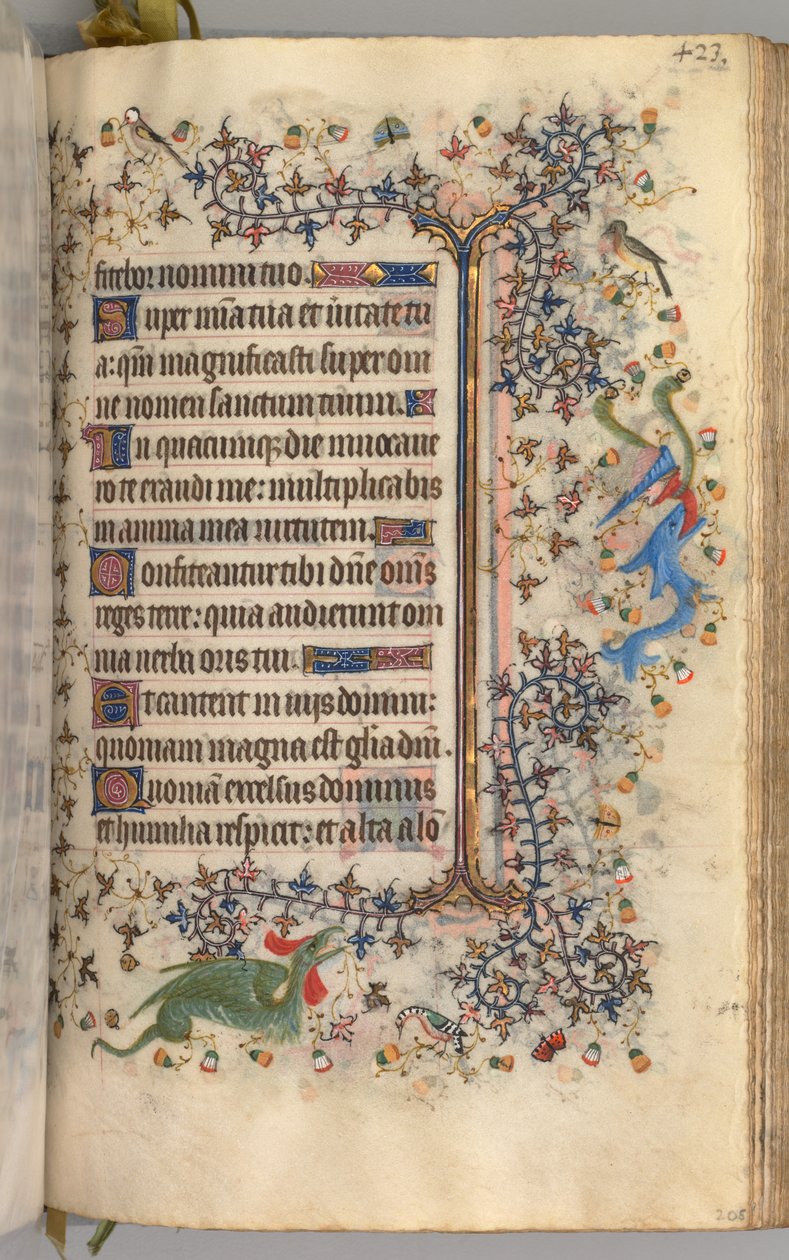 423.
fitebor nomini tuo.
Super mīa tua et ūitate tu
a: qm̄ magnificasti super om
ne nomen sanctum tuum.
In quacumqꝫ die inuocaue
ro te exaudi me: multiplicabis
in anima mea uirtutem.
Confiteantur tibi dn̄e om̄s
reges terre: quia audierunt om
nia uerba oris tui.
Et cantent in uijs domini:
quoniam magna est gl̄ia dn̄i.
Quoniā excelsus dominus
et humilia respicit: et alta a lō
205